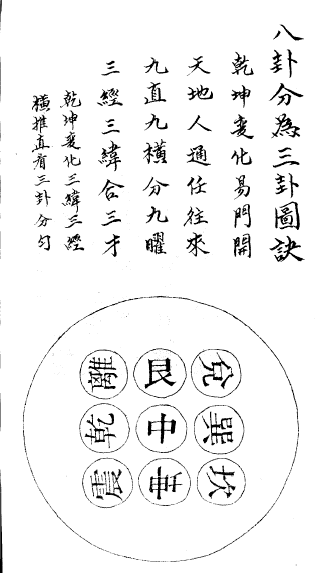 八卦分為三卦圖訣
乾坤變化易門開
天地人通任往來
九直九橫分九曜
三經三緯合三才
乾坤變化三緯三經
橫推直看三卦分勻
兌
巽
坎
艮
中
離
乾
震